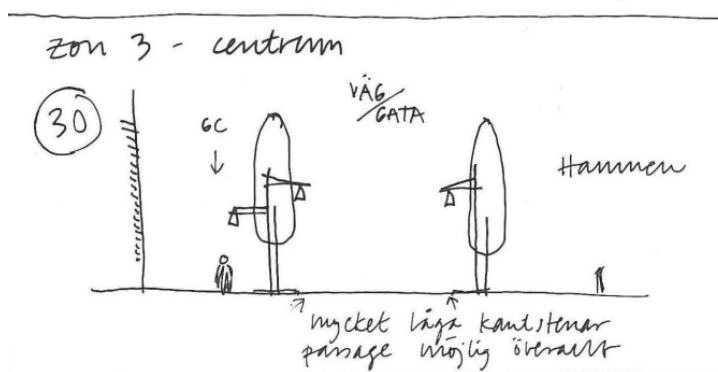 zon 3 - centrum
30
GC
VÄG/GATA
Hamnen
mycket låga kantstenar
passage möjlig överallt